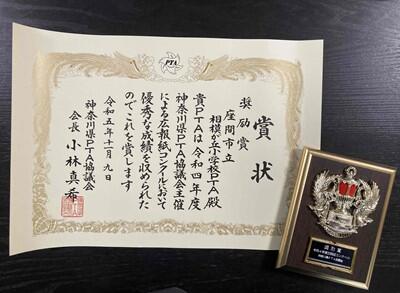 PTA
賞状
奨励賞
座間市立
相模が丘小学校PTA殿
貴PTAは令和四年度
神奈川県PTA協議会主催
による広報紙コンクールにおいて
優秀な成績を収められた
のでこれを賞します
令和五年十一月九日
神奈川県PTA協議会
会長 小林真希
奨励賞